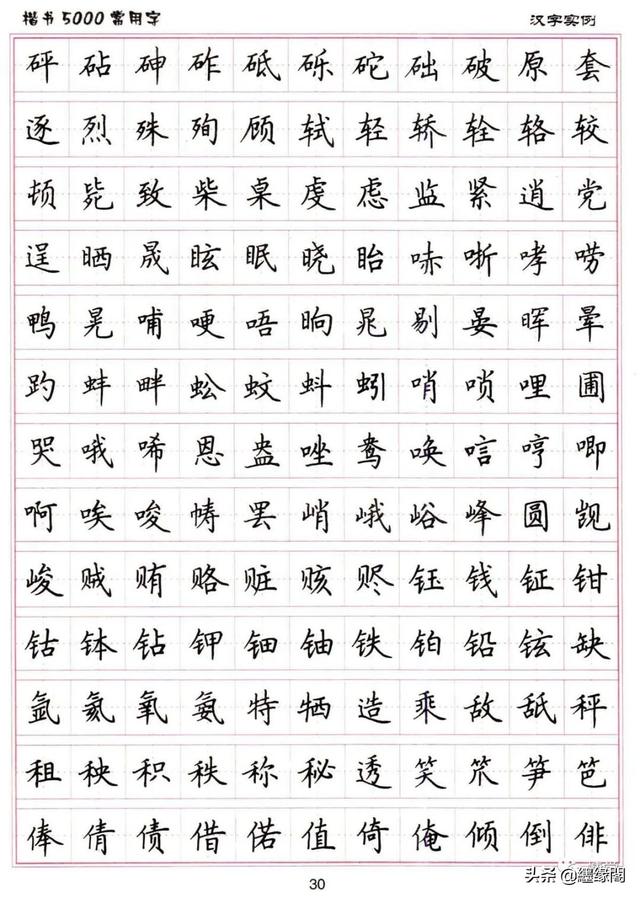 楷书5000常用字 汉字实例
砰 砧 砷 砟 砥 砾 砣 础 破 原 套
逐 烈 殊 殉 顾 轼 轻 轿 辁 辂 较
顿 毙 致 柴 桌 虔 虑 监 紧 逍 党
逞 晒 晟 眩 眠 晓 眙 哧 哳 哮 唠
鸭 晃 哺 哽 唔 晌 晁 剔 晏 晖 晕
趵 蚌 畔 蚣 蚊 蚪 蚓 哨 唢 哩 圃
哭 哦 唏 恩 盎 唑 鸯 唤 唁 哼 唧
啊 唉 唆 帱 罢 峭 峨 峪 峰 圆 觊
峻 贼 贿 赂 赃 赅 赆 钰 钱 钲 钳
钴 钵 钻 钾 钿 铀 铁 铂 铅 铉 缺
氩 氦 氧 氨 特 牺 造 乘 敌 舐 秤
租 秧 积 秩 称 秘 透 笑 笊 笋 笆
俸 倩 债 借 偌 值 倚 俺 倾 倒 俳
30
头条 @缠缘阁